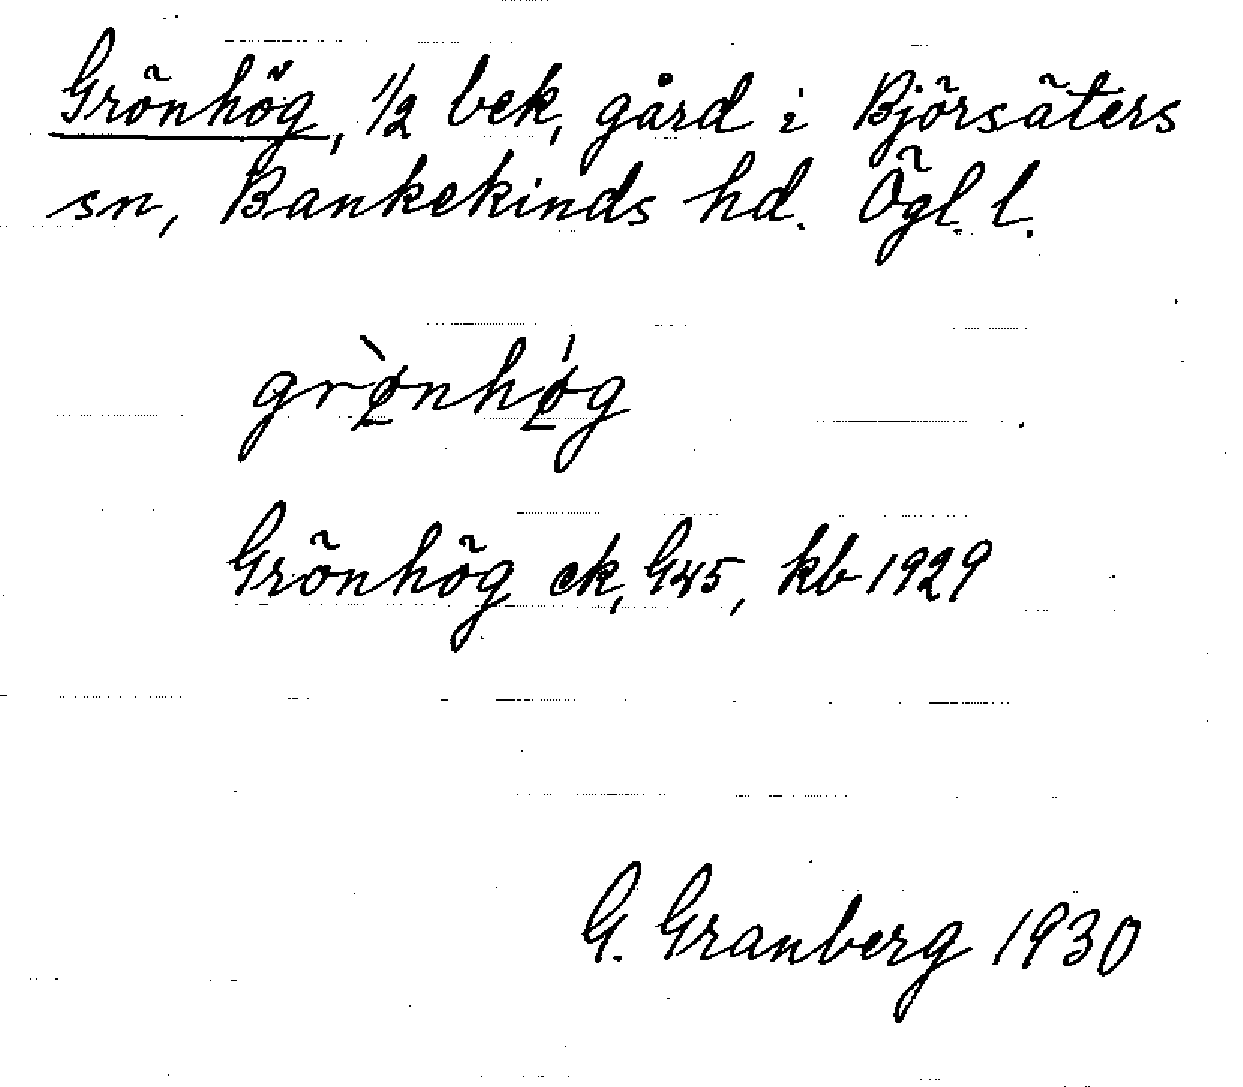 Grönhög, 1/2 bek, gård i Björsäters
sn, Bankekinds hd. Ögl. l.
grø̀nhǿg
Grönhög ek, G45, kb 1929
G. Granberg 1930